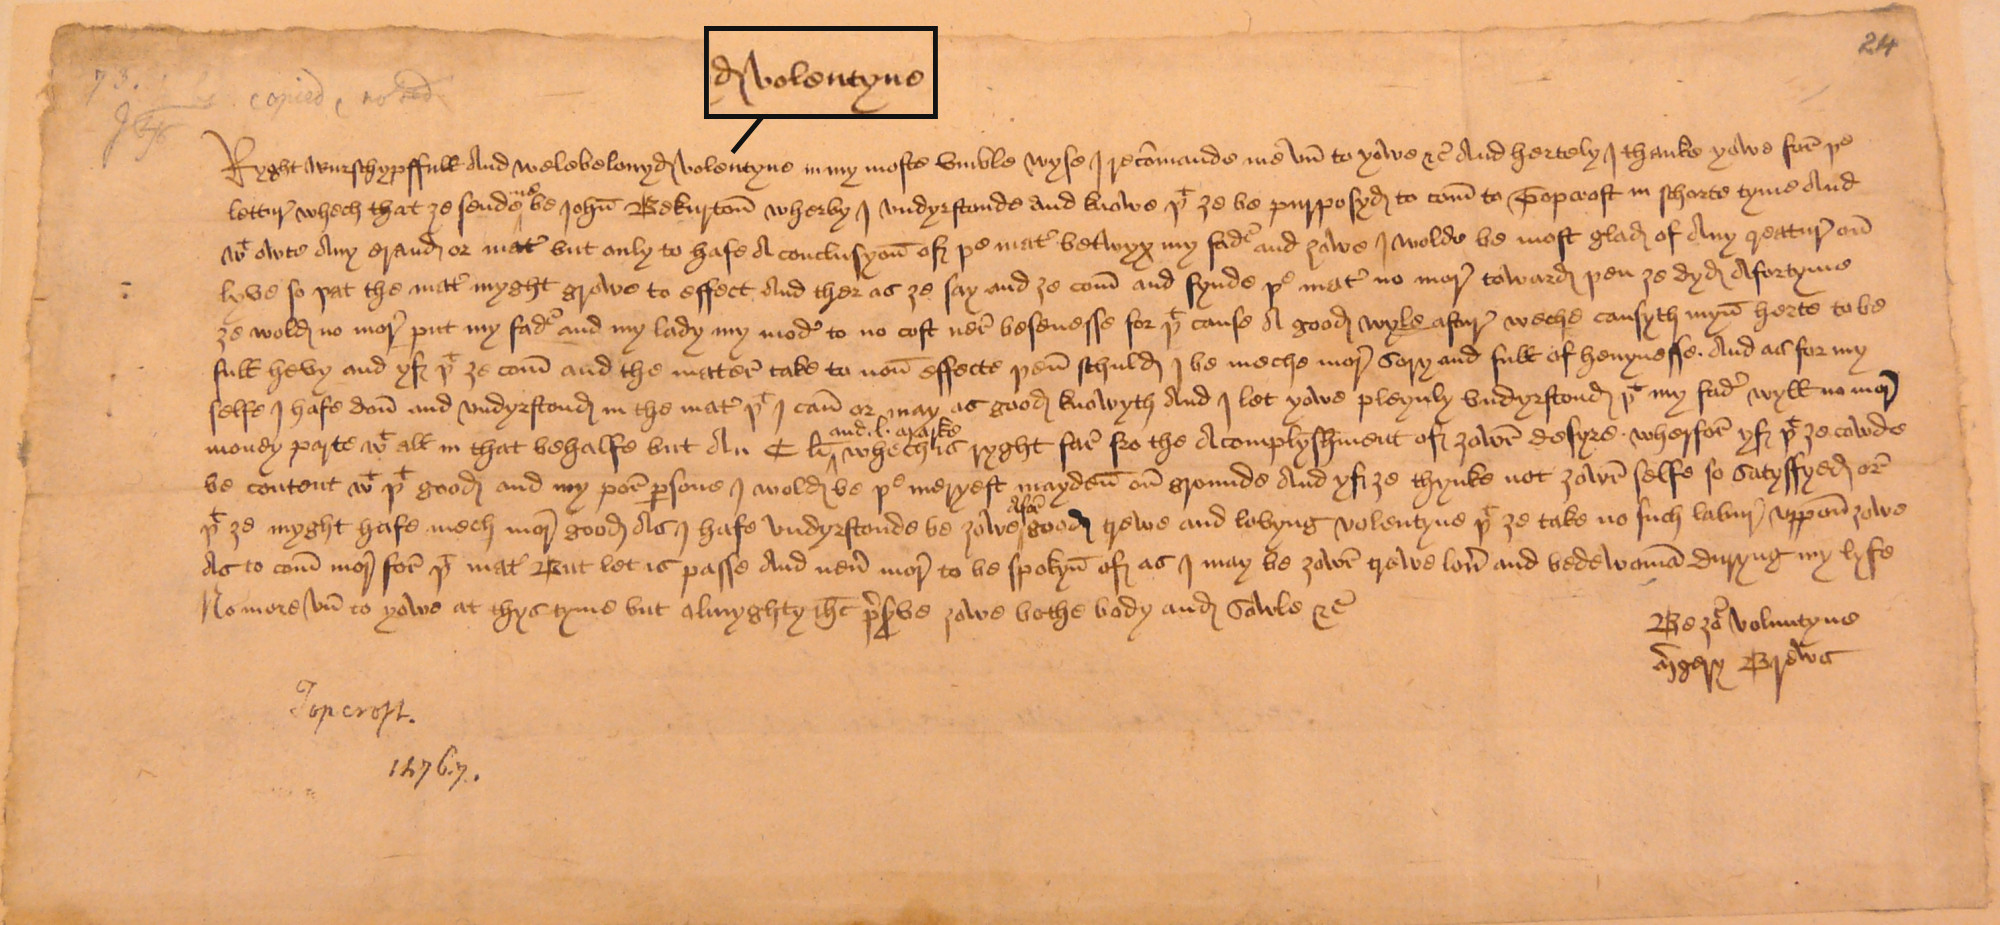 24
73. copied
volentyne
Ryght wurschypffull and welebelovyd volentyne in my moste umble wyse I recomande me un to yowe &c And hertely I thanke yowe fore þe
lettur whech that ze sende me be John Bekurton wherby I undyrstonde and knowe þt ze be purposyd to com to Topcroft in schorte tyme And
wt owte any erand or mater but only to hafe a conclusyon of þe mater betwyx my fader and zowe I wolde be most glad of any creatur on
lyve so þat the mater myght growe to effect And ther as ze say and ze com and fynde þe mater no mor toward þen ze dyd afortyme
ze wold no mor put my fader and my lady my moder to no cost ner besenesse for þt cause a good wyle aftur weche causyth myn herte to be
full hevy and yf þt ze com and the mater take to non effecte þen schuld I be meche mor sory and full of hevynesse. And as for my
selfe I hafe don and undyrstond in the mater þt I can or may as good knowyth And I let yowe pleynly undyrstond þt my fader wyll no mor
money parte wt all in that behalfe but an C li and .l. marke whech is ryght far fro the acomplyshment of zowr desyre. wherfor yf þt ze cowde
be content wt þt good and my por persone I wold be þe meryest mayden on grounde And yf ze thynke not zowr selfe so satysffyed or
þt ze myght hafe mech mor good as I hafe undyrstonde be zowe afor good trewe and lovyng volentyne þt ze take no such labur uppon zowe
As to com mor for þt mater But let is passe And never mor to be spokyn of as I may be zowr trewe lover and bedewoman duryng my lyfe
No more un to yowe at thys tyme but almyghty Jhc preserve zowe bothe body and sowle &c
Be zor Voluntyne
Mergery Brews
Topcroft.
1476.7.